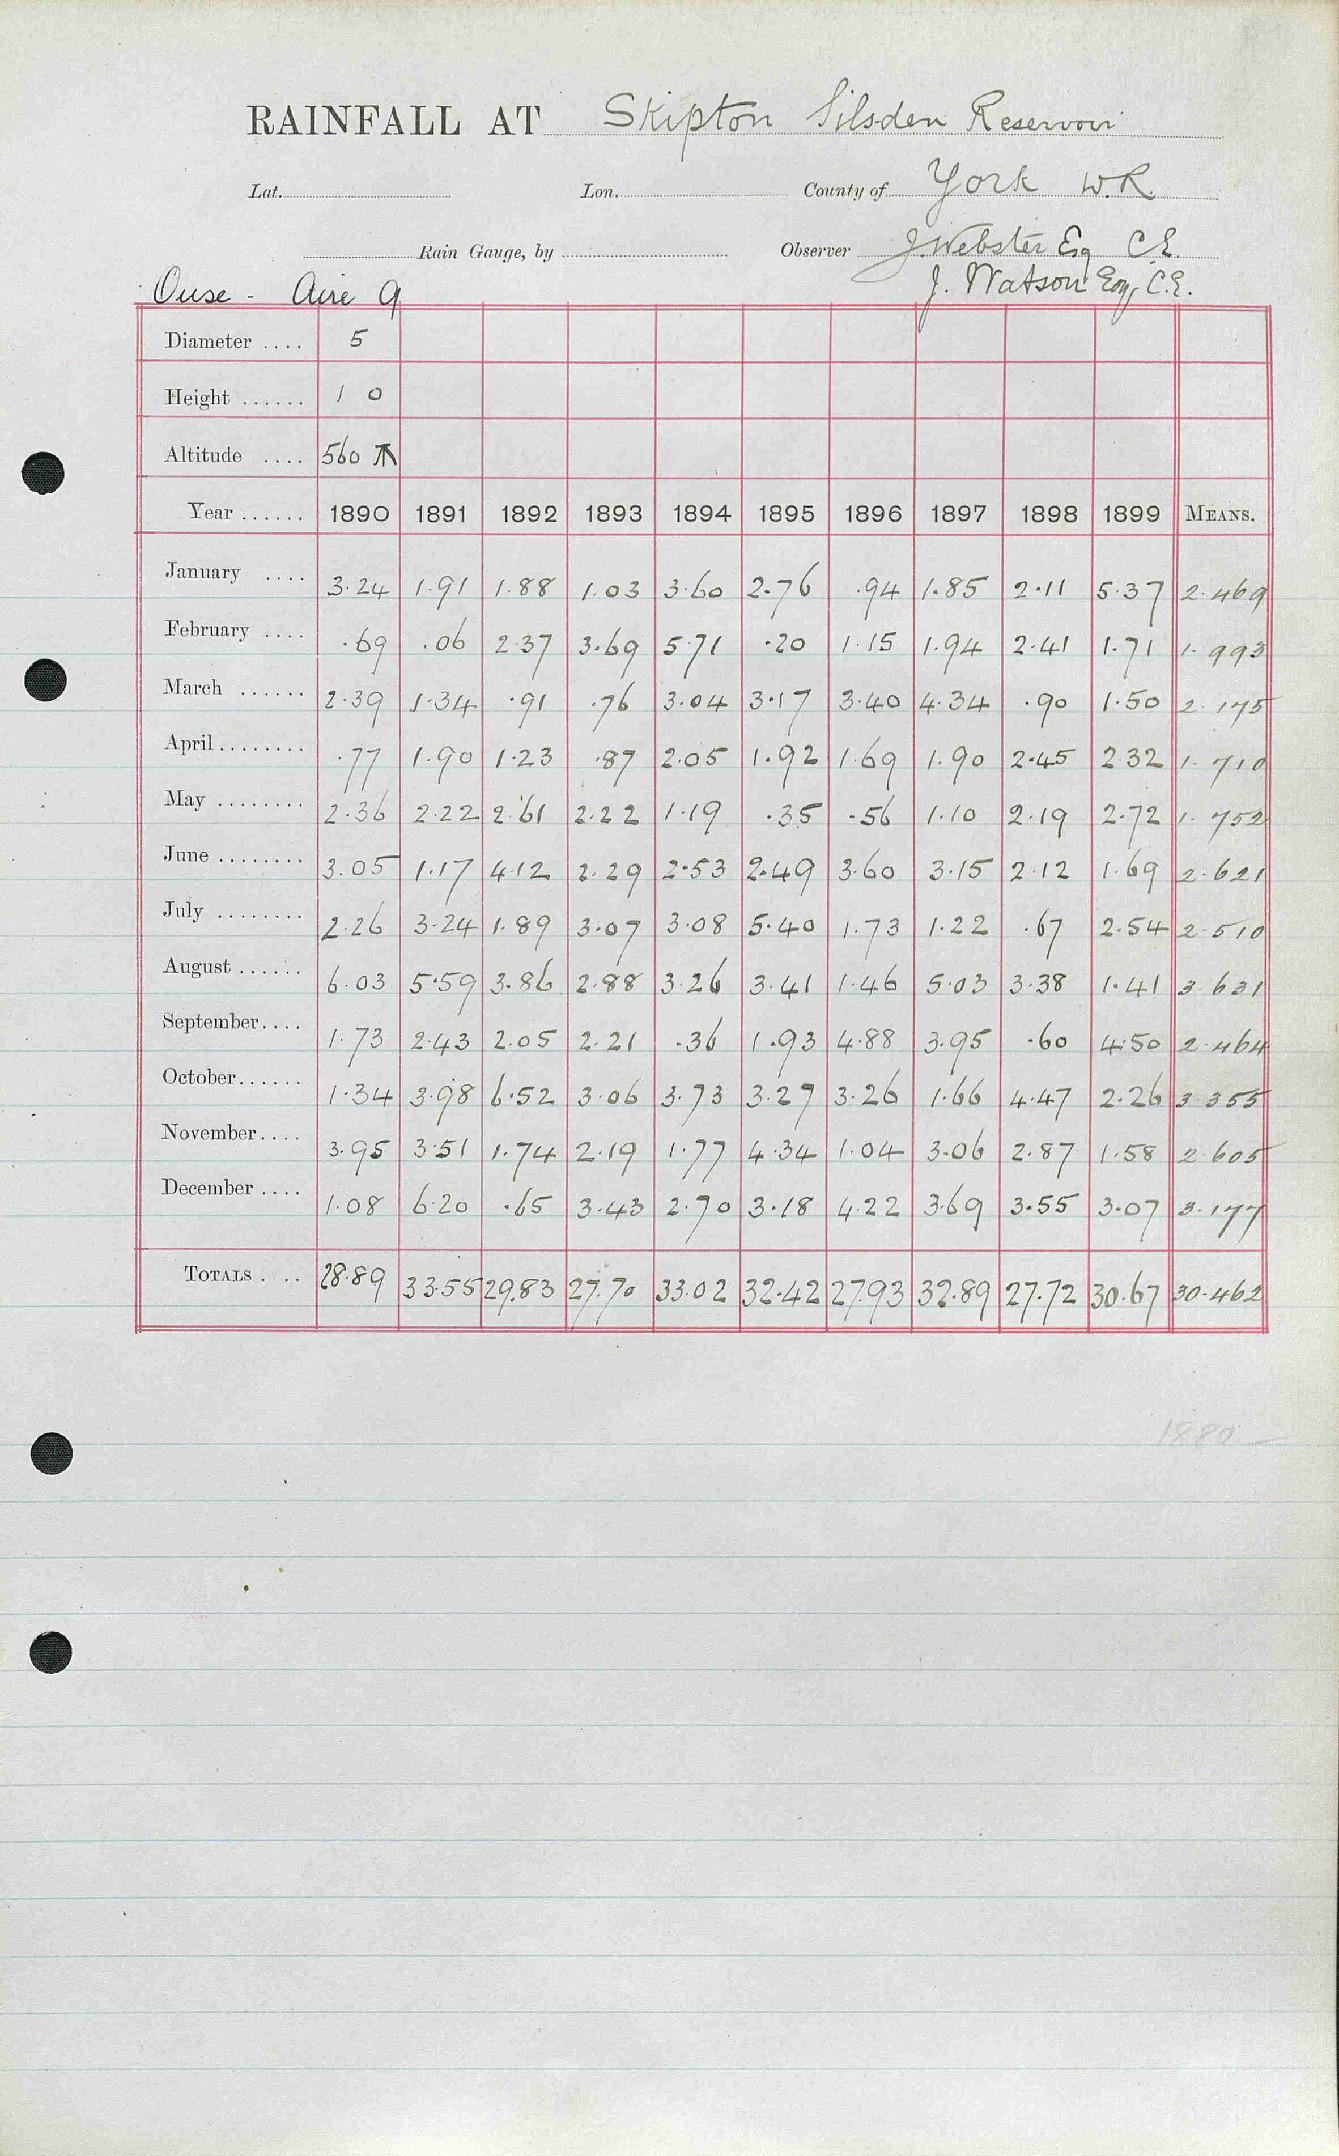 RAINFALL AT Skipton Silsden Reservoir
Lat. Lon. County of York W.R.
Rain Gauge, by Observer J. Webster Esq C.E.
Ouse - Aire 9 J. Watson Esq, C.E.
Diameter .... 5
Height ...... 1 0
Altitude .... 560
Year ...... 1890 1891 1892 1893 1894 1895 1896 1897 1898 1899 MEANS.
January .... 3.24 1.91 1.88 1.03 3.60 2.76 .94 1.85 2.11 5.37 2.469
February .... .69 .06 2.37 3.69 5.71 .20 1.15 1.94 2.41 1.71 1.993
March ...... 2.39 1.34 .91 .76 3.04 3.17 3.40 4.34 .90 1.50 2.175
April ........ .77 1.90 1.23 .87 2.05 1.92 1.69 1.90 2.45 2.32 1.710
May ........ 2.36 2.22 2.61 2.22 1.19 .35 .56 1.10 2.19 2.72 1.752
June ........ 3.05 1.17 4.12 2.29 2.53 2.49 3.60 3.15 2.12 1.69 2.621
July ........ 2.26 3.24 1.89 3.07 3.08 5.40 1.73 1.22 .67 2.54 2.510
August ...... 6.03 5.59 3.86 2.88 3.26 3.41 1.46 5.03 3.38 1.41 3.631
September .... 1.73 2.43 2.05 2.21 .36 1.93 4.88 3.95 .60 4.50 2.464
October ...... 1.34 3.98 6.52 3.06 3.73 3.27 3.26 1.66 4.47 2.26 3.355
November .... 3.95 3.51 1.74 2.19 1.77 4.34 1.04 3.06 2.87 1.58 2.605
December .... 1.08 6.20 .65 3.43 2.70 3.18 4.22 3.69 3.55 3.07 3.177
TOTALS .... 28.89 33.55 29.83 27.70 33.02 32.42 27.93 32.89 27.72 30.67 30.462
1880